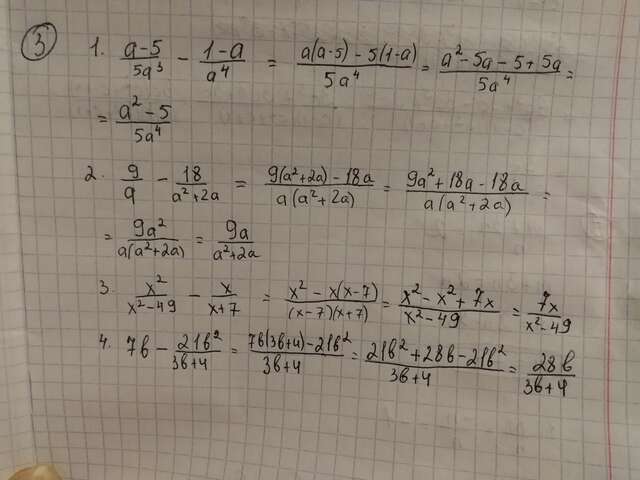 3
1. (a-5)/(5a³) - (1-a)/(a⁴) = (a(a-5) - 5(1-a))/(5a⁴) = (a² - 5a - 5 + 5a)/(5a⁴) =
= (a² - 5)/(5a⁴)
2. 9/a - 18/(a²+2a) = (9(a²+2a) - 18a)/(a(a²+2a)) = (9a² + 18a - 18a)/(a(a²+2a)) =
= 9a²/(a(a²+2a)) = 9a/(a²+2a)
3. x²/(x²-49) - x/(x+7) = (x² - x(x-7))/((x-7)(x+7)) = (x² - x² + 7x)/(x²-49) = 7x/(x²-49)
4. 7b - 21b²/(3b+4) = (7b(3b+4) - 21b²)/(3b+4) = (21b² + 28b - 21b²)/(3b+4) = 28b/(3b+4)